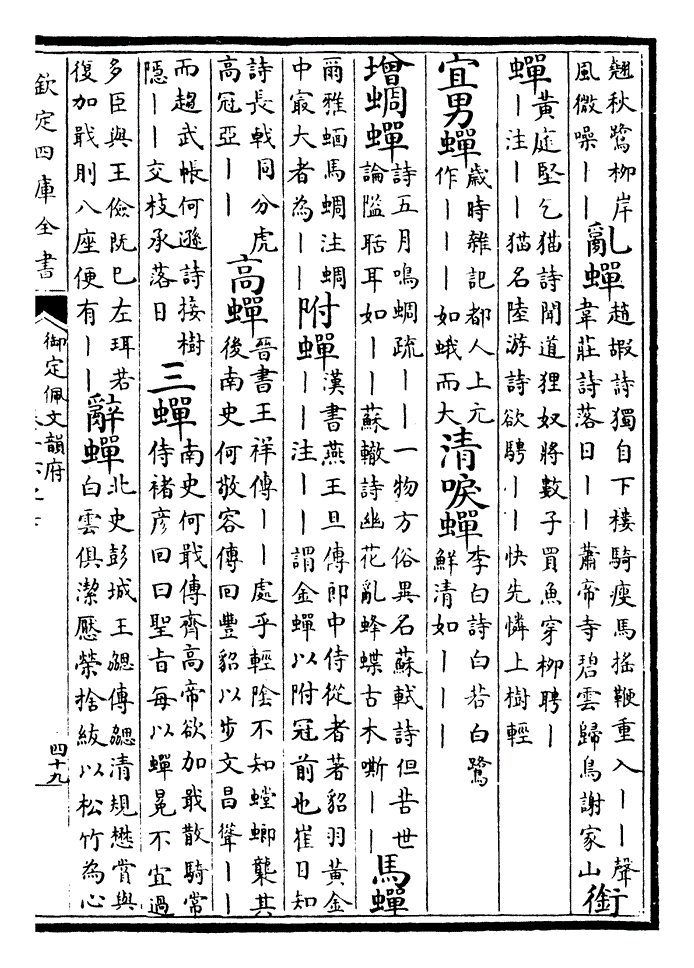 翹秋鷺柳岸
風微噪丨丨
亂蟬
趙嘏詩獨自下樓騎瘦馬搖鞭重入丨丨聲
韋莊詩落日丨丨蕭帝寺碧雲歸鳥謝家山
銜
蟬
黃庭堅乞猫詩聞道狸奴將數子買魚穿柳聘丨
丨注丨丨猫名陸游詩欲騁丨丨快先憐上樹輕
宜男蟬
歲時雜記都人上元
作丨丨丨如蛾而大
清唳蟬
李白詩白若白鷺
鮮清如丨丨丨
增蜩蟬
詩五月鳴蜩疏丨丨一物方俗異名蘇軾詩但苦世
論隘聒耳如丨丨蘇轍詩幽花亂蜂蝶古木嘶丨丨
馬蟬
爾雅蝒馬蜩注蜩
中㝡大者為丨丨
附蟬
漢書燕王旦傳郎中侍從者著貂羽黃金
丨丨注丨丨謂金蟬以附冠前也崔日知
詩長戟同分虎
高冠亞丨丨
高蟬
晉書王祥傳丨丨處乎輕陰不知螳螂襲其
後南史何敬容傳回豐貂以步文昌聳丨丨
而趨武帳何遜詩接樹
隱丨丨交枝承落日
三蟬
南史何戢傳齊高帝欲加戢散騎常
侍褚彥回曰聖旨每以蟬冕不宜過
多臣與王儉既已左珥若
復加戢則八座便有丨丨
辭蟬
北史彭城王勰傳勰清規懋賞與
白雲俱潔厭榮捨紱以松竹為心
欽定四庫全書
御定佩文韻府
四十九